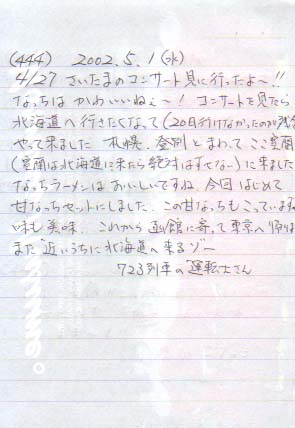 (444) 2002.5.1(水)
4/27 さいたまのコンサート見に行ったよ〜!!
なっちはかわいいねぇ〜! コンサートを見たら
北海道へ行きたくなって(20日行けなかったのが残念
やって来ました 札幌、登別とまわってここ室蘭
(室蘭は北海道に来たら絶対はずせない)に来ました
なっちラーメンはおいしいですね 今回はじめて
甘なっちセットにしました この甘なっちもこっています
味も美味 これから函館に寄って東京へ帰り
また近いうちに北海道へ来るゾー
723列車の運転士さん